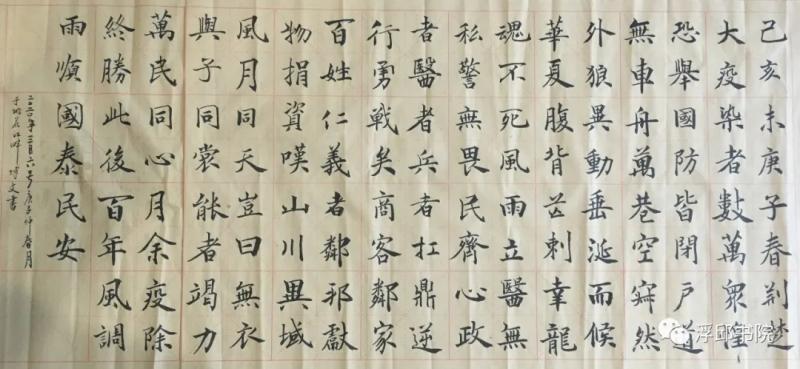 己亥末庚子春荆楚
大疫染者數萬眾惶
恐舉國防皆閉戶道
無車舟萬巷空寂然
外狼異動垂涎而候
華夏腹背芒刺幸龍
魂不死風雨立醫無
私警無畏民齊心政
者醫者兵者扛鼎逆
行勇戰矣商客鄰家
百姓仁義者鄰邦獻
物捐資嘆山川異域
風月同天豈曰無衣
與子同裳能者竭力
萬民同心月余疫除
終勝此後百年風調
雨順國泰民安
二〇二〇年三月六号庚子仲春月
于 博文書
浮邱书院